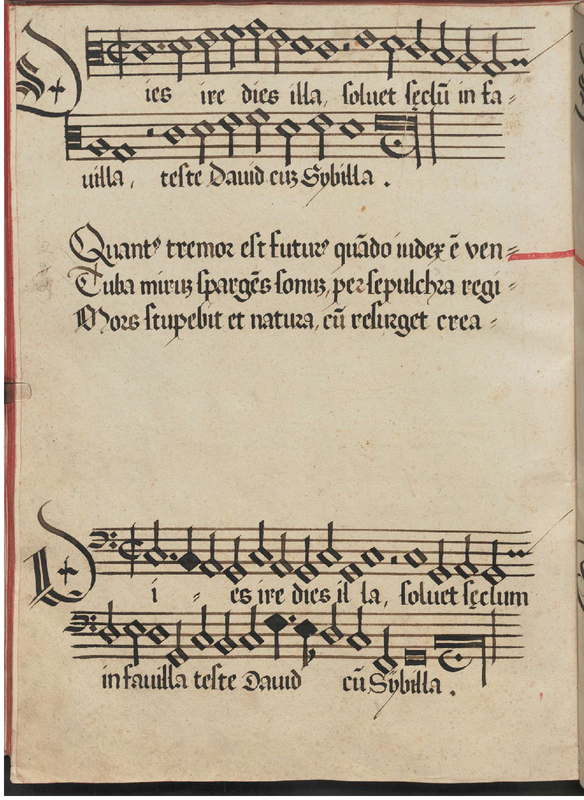 Dies ire dies illa, soluet sęclū in fa-
uilla, teste Dauid cuz Sybilla.
Quantꝰ tremor est futurꝰ quādo iudex ē ven-
Tuba miruz spargēs sonuz, per sepulchra regi-
Mors stupebit et natura, cū resurget crea-
Di - es ire dies il la, soluet sęclum
in fauilla teste Dauid cū Sybilla.